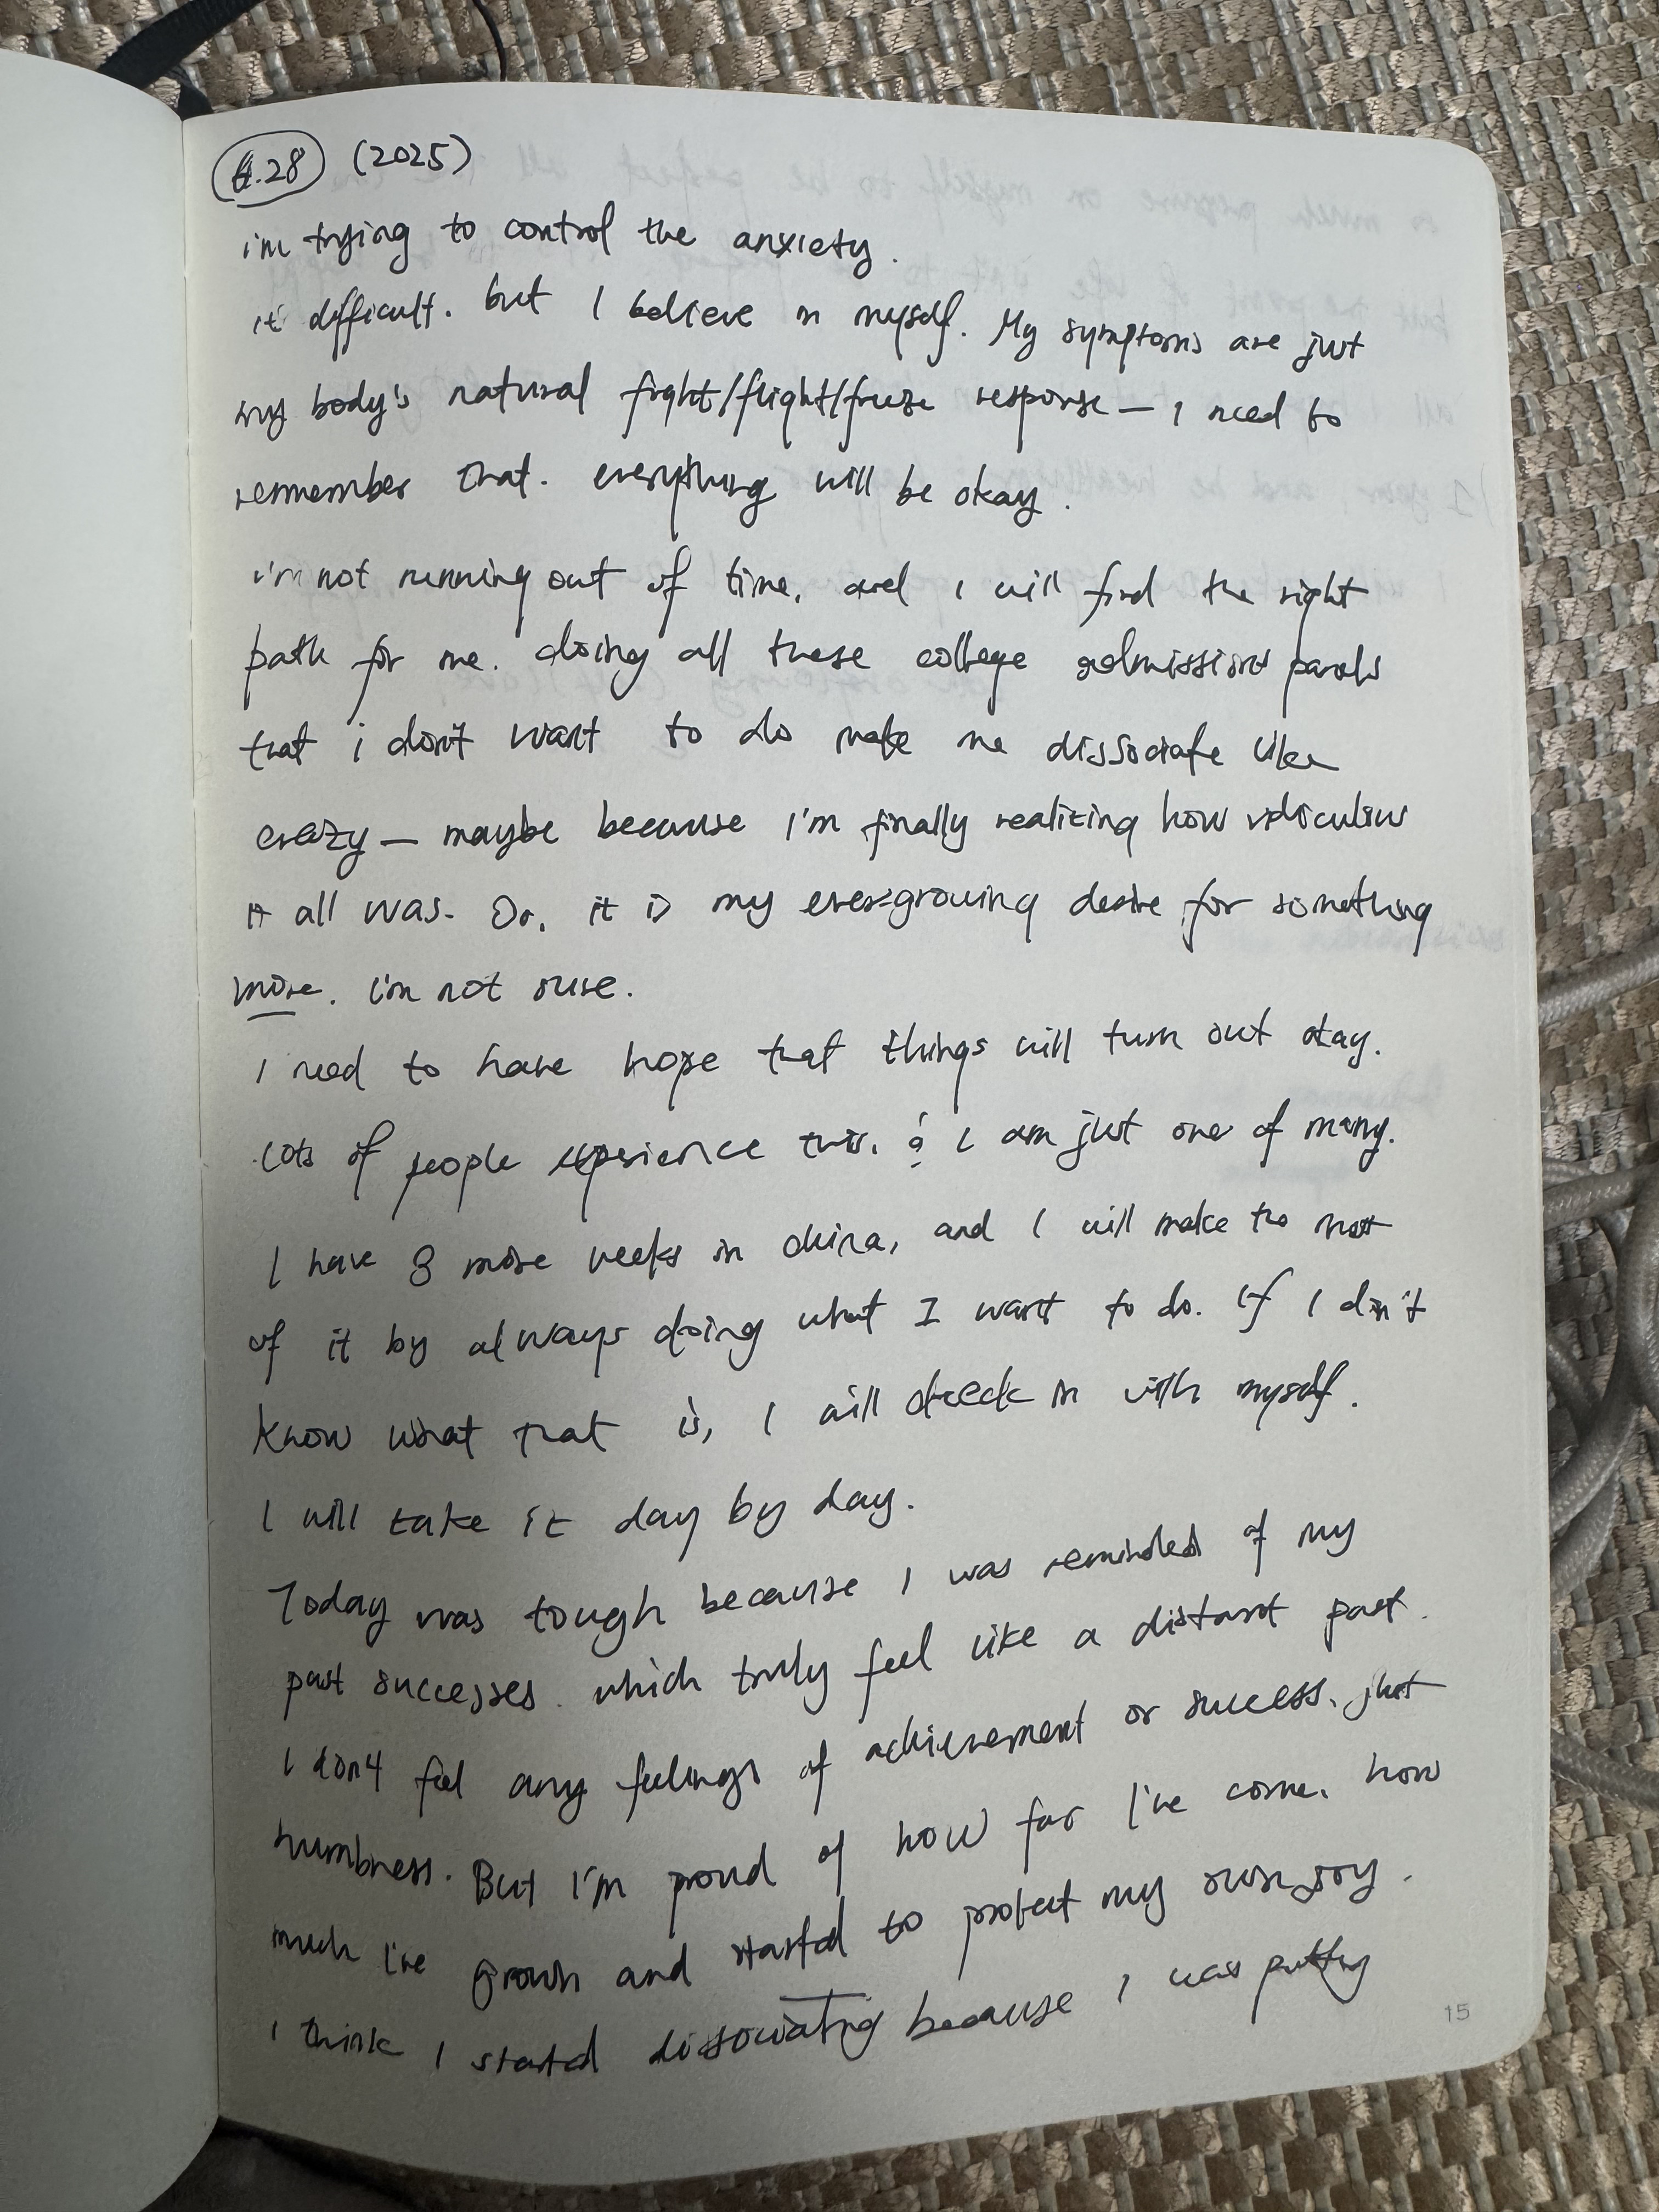 6.28 (2025)
i'm trying to control the anxiety.
it' difficult. but I believe in myself. My symptoms are just
my body's natural fight/flight/freeze response — I need to
remember that. everything will be okay.
i'm not running out of time, and I will find the right
path for me. doing all these college admissions panels
that i don't want to do make me dissociate like
crazy — maybe because I'm finally realizing how ridiculous
it all was. Or, it is my ever-growing desire for something
more. I'm not sure.
I need to have hope that things will turn out okay.
lots of people experience this, & I am just one of many.
I have 8 more weeks in china, and I will make the most
of it by always doing what I want to do. If I don't
know what that is, I will check in with myself.
I will take it day by day.
Today was tough because I was reminded of my
past successes. which truly feel like a distant past.
I don't feel any feelings of achievement or success, just
numbness. But I'm proud of how far I've come, how
much I've grown and started to protect my own joy.
I think I started dissociating because I was putting
15